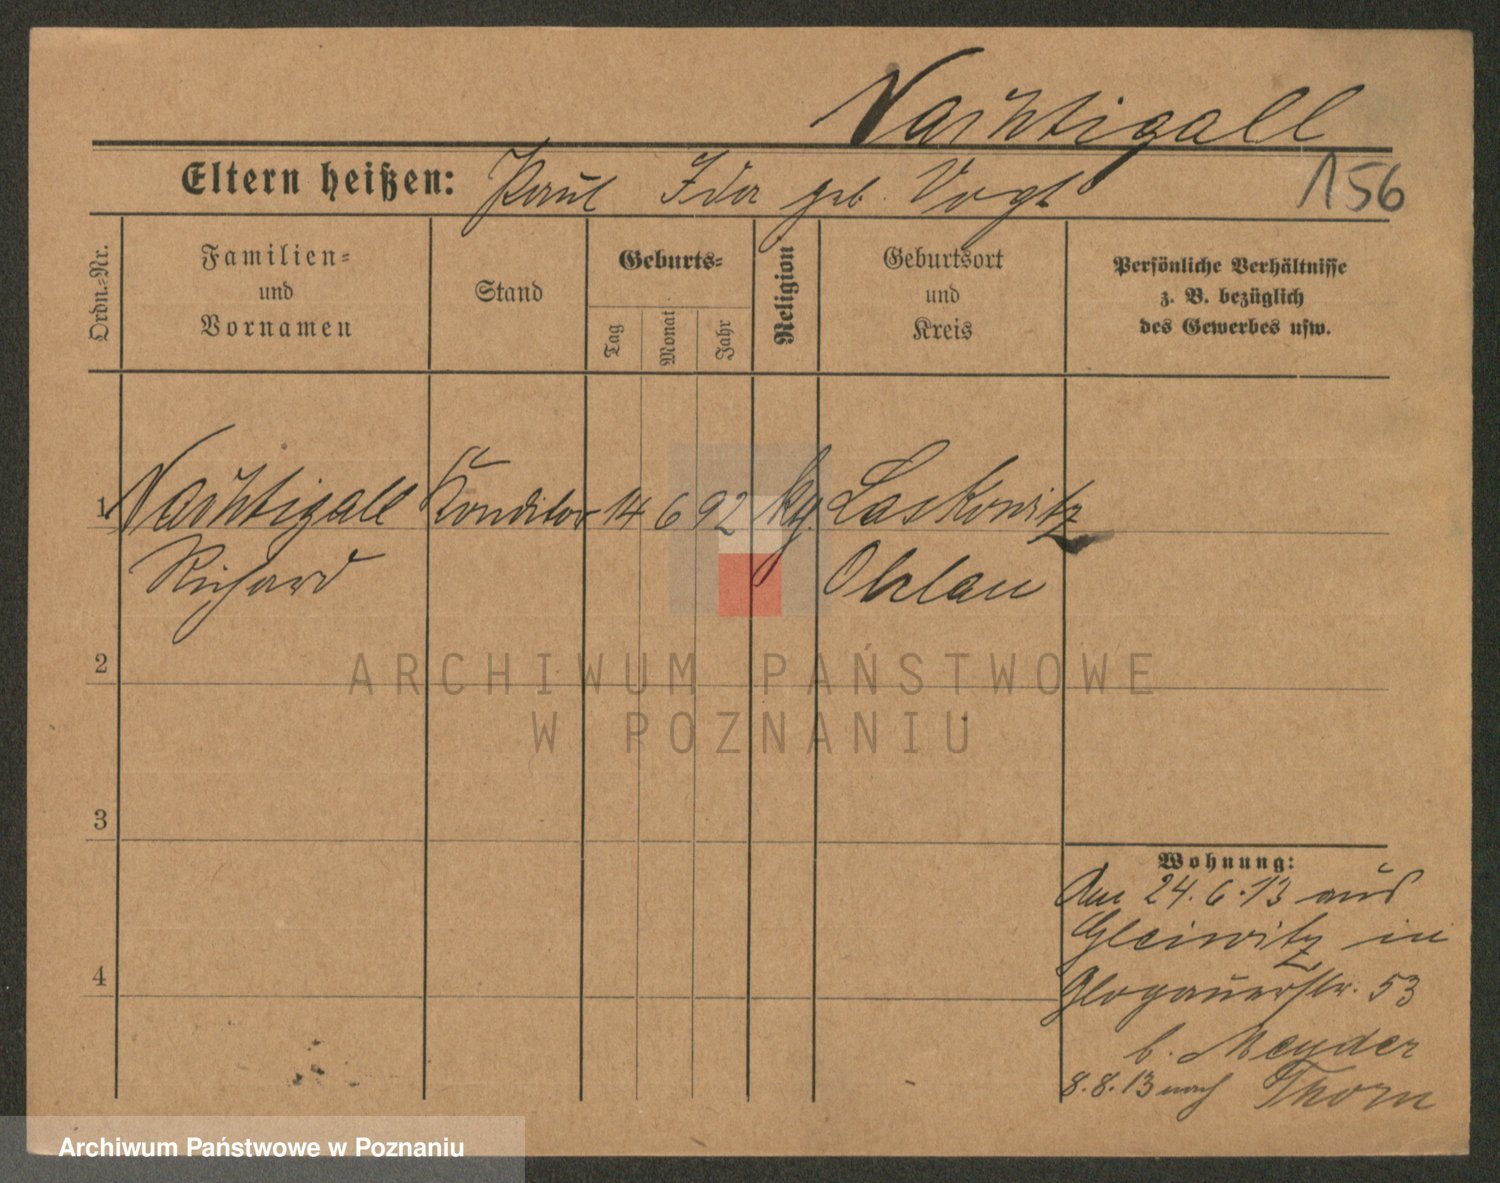 Nachtigall
Eltern heißen: Paul Ida geb. Vogt
156
Ordn.-Nr.
Familien-
und
Vornamen
Stand
Geburts-
Tag
Monat
Jahr
Religion
Geburtsort
und
Kreis
Persönliche Verhältnisse
z. B. bezüglich
des Gewerbes usw.
1 Nachtigall Konditor 14 6 92 Laskowitz
Richard Ohlau
ARCHIWUM PAŃSTWOWE
W POZNANIU
2
3
4
Wohnung:
Am 24.6.13 aus
Gleiwitz in
Glogauerstr. 53
b. Meyder
8.8.13 nach Thorn
Archiwum Państwowe w Poznaniu